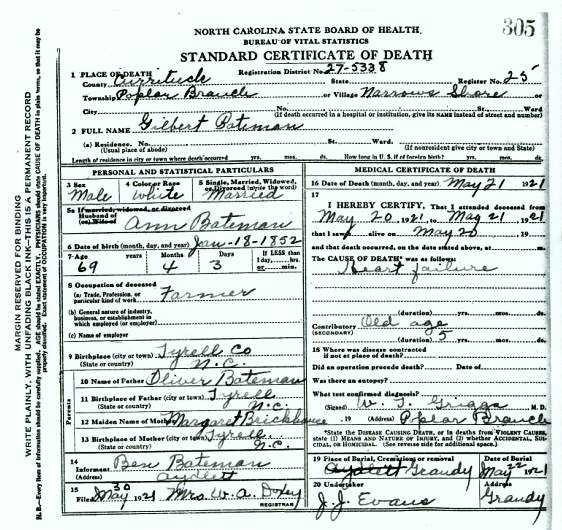 305
NORTH CAROLINA STATE BOARD OF HEALTH,
BUREAU OF VITAL STATISTICS
STANDARD CERTIFICATE OF DEATH
1 PLACE OF DEATH Registration District No. 27-5338
County Currituck State Register No. 25
Township Poplar Branch or Village Narrows Shore or
City No. St. Ward
(If death occurred in a hospital or institution, give its NAME instead of street and number)
2 FULL NAME Gilbert Bateman
(a) Residence. No. St. Ward.
(Usual place of abode) (If nonresident give city or town and State)
Length of residence in city or town where death occurred yrs. mos. ds. How long in U. S. if of foreign birth? yrs. mos. ds.
PERSONAL AND STATISTICAL PARTICULARS
3 Sex 4 Color or Race 5 Single, Married, Widowed, or Divorced (write the word)
Male White Married
5a If married, widowed, or divorced
Husband of
(or) Wife of Ann Bateman
6 Date of birth (month, day, and year) Jan-18-1852
7 Age years Months Days If LESS than
1 day, hrs.
or min.
69 4 3
8 Occupation of deceased
(a) Trade, Profession, or
particular kind of work Farmer
(b) General nature of industry,
business, or establishment in
which employed (or employer)
(c) Name of employer
9 Birthplace (city or town) Tyrell Co
(State or country) N.C.
Parents
10 Name of Father Oliver Bateman
11 Birthplace of Father (city or town) Tyrell
(State or country) N.C.
12 Maiden Name of Mother Margaret Brickhouse
13 Birthplace of Mother (city or town) Tyrell
(State or country) N.C.
14
Informant Ben Bateman
(Address) Aydlett
15
Filed May 30 1921 Mrs. W. A. Doxey
REGISTRAR
MEDICAL CERTIFICATE OF DEATH
16 Date of Death (month, day, and year) May 21 1921
17
I HEREBY CERTIFY, That I attended deceased from
May 20 1921 to May 21 1921
that I saw alive on May 20 19
and that death occurred, on the date stated above, at m.
The CAUSE OF DEATH* was as follows:
Heart failure
(duration) yrs. mos. ds.
Contributory Old age
(SECONDARY)
(duration) 5 yrs. mos. ds.
18 Where was disease contracted
if not at place of death?
Did an operation precede death? Date of
Was there an autopsy?
What test confirmed diagnosis?
(Signed) W. T. Griggs M. D.
, 19 (Address) Poplar Branch
*State the DISEASE CAUSING DEATH, or in deaths from VIOLENT CAUSES,
state (1) MEANS AND NATURE OF INJURY, and (2) whether ACCIDENTAL, SUI-
CIDAL, or HOMICIDAL. (See reverse side for additional space.)
19 Place of Burial, Cremation, or removal Date of Burial
Aydlett Grandy May 22 1921
20 Undertaker Address
J. J. Evans Grandy
MARGIN RESERVED FOR BINDING
WRITE PLAINLY, WITH UNFADING BLACK INK—THIS IS A PERMANENT RECORD
N. B.—Every item of information should be carefully supplied. AGE should be stated EXACTLY. PHYSICIANS should state CAUSE OF DEATH in plain terms, so that it may be
properly classified. Exact statement of OCCUPATION is very important.